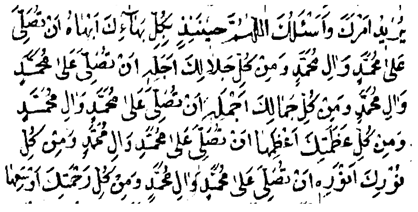 يُرِيدُ اَمْرَكَ وَاَسْئَلُكَ اللّٰهُمَّ حِينَئِذٍ بِكُلِّ بَهَآئِكَ اَبْهَاهُ اَنْ تُصَلِّىَ
عَلٰى مُحَمَّدٍ وَاٰلِ مُحَمَّدٍ وَمِنْ كُلِّ جَلَالِكَ اَجَلِّهِ اَنْ تُصَلِّىَ عَلٰى مُحَمَّدٍ
وَاٰلِ مُحَمَّدٍ وَمِنْ كُلِّ جَمَالِكَ اَجْمَلِهِ اَنْ تُصَلِّىَ عَلٰى مُحَمَّدٍ وَاٰلِ مُحَمَّدٍ
وَمِنْ كُلِّ عَظَمَتِكَ اَعْظَمِهَا اَنْ تُصَلِّىَ عَلٰى مُحَمَّدٍ وَاٰلِ مُحَمَّدٍ وَمِنْ كُلِّ
نُوْرِكَ اَنْوَرِهِ اَنْ تُصَلِّىَ عَلٰى مُحَمَّدٍ وَاٰلِ مُحَمَّدٍ وَمِنْ كُلِّ رَحْمَتِكَ اَوْسَعِهَا